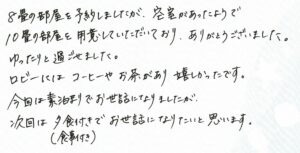 8畳の部屋を予約しましたが、空室があったようで
10畳の部屋を用意していただいており、ありがとうございました。
ゆったりと過ごせました。
ロビーにはコーヒーやお茶があり嬉しかったです。
今回は素泊まりでお世話になりましたが、
次回は夕食付きでお世話になりたいと思います。
(食事付き)